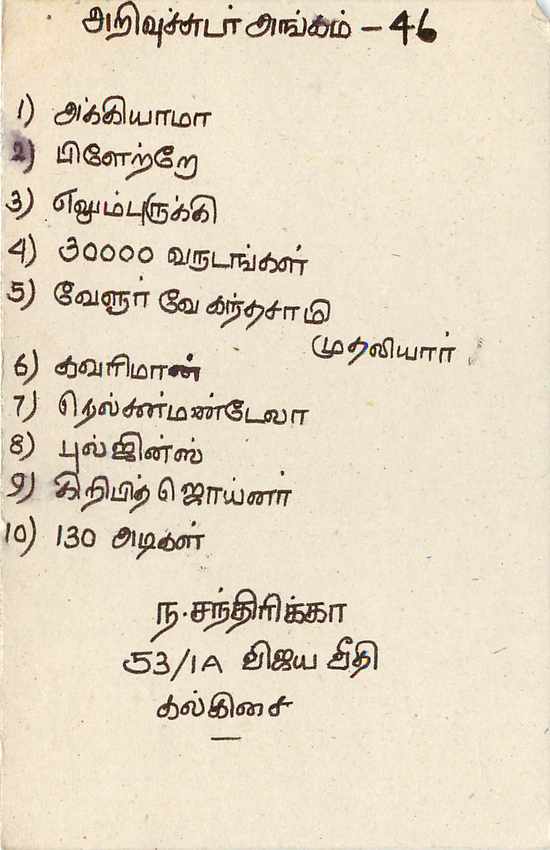 அறிவுச்சுடர் அங்கம் - 46
1) அக்கியாமா
2) பிளேற்றே
3) எலும்புருக்கி
4) 30000 வருடங்கள்
5) வேளூர் வே கந்தசாமி
முதலியார்
6) கவரிமான்
7) நெல்சன்மண்டேலா
8) புல்ஜின்ஸ்
9) கிறிபித் ஜொய்னர்
10) 130 அடிகள்
ந.சந்திரிக்கா
53/1A விஜய வீதி
கல்கிசை